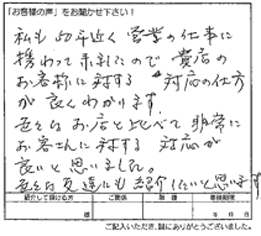 「お客様の声」をお聞かせ下さい!
私も50年近く営業の仕事に
携わって来ましたので貴店の
お客様に対する 対応の仕方
が良くわかります
色々なお店と比べて非常に
お客さんに対する 対応が
良いと思いました。
色々な友達にも紹介したいと思います
紹介して頂ける方 ご関係 車種 車検期限
様 年 月 日
ご記入いただき、誠にありがとうございました。